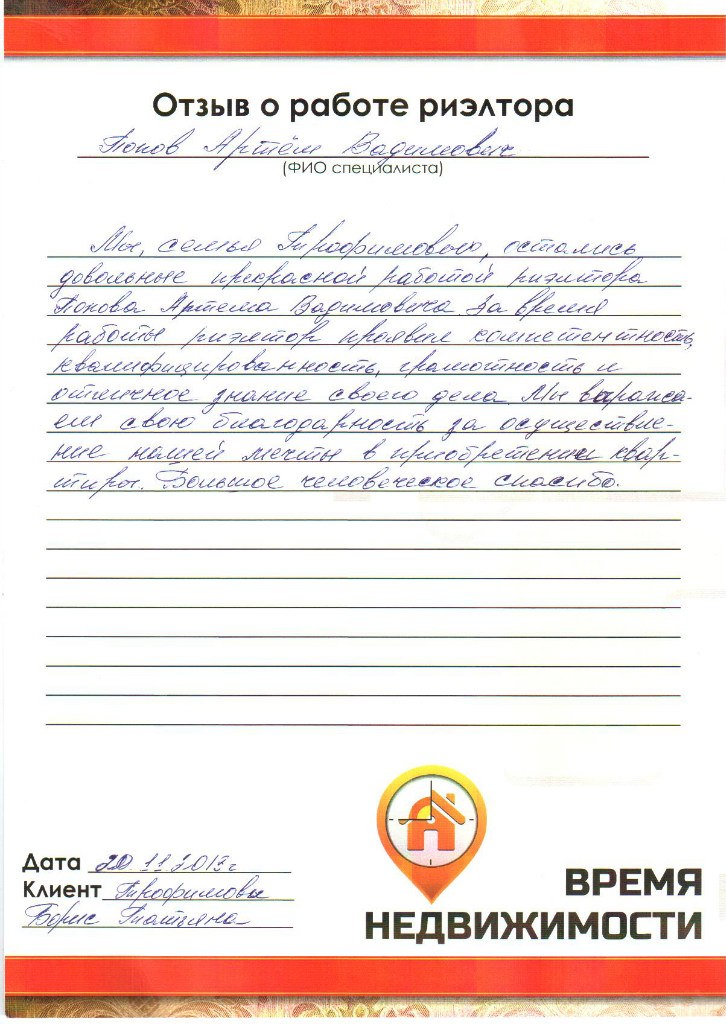 Отзыв о работе риэлтора
Попов Артём Вадимович
(ФИО специалиста)
Мы, семья Трофимовых, остались
довольные прекрасной работой риэлтора
Попова Артема Вадимовича. За время
работы риэлтор проявил компетентность,
квалифицированность, грамотность и
отличное знание своего дела. Мы выража-
ем свою благодарность за осуществле-
ние нашей мечты в приобретении квар-
тиры. Большое человеческое спасибо.
Дата 20.11.2013г
Клиент Трофимовы
Борис Татьяна
ВРЕМЯ
НЕДВИЖИМОСТИ